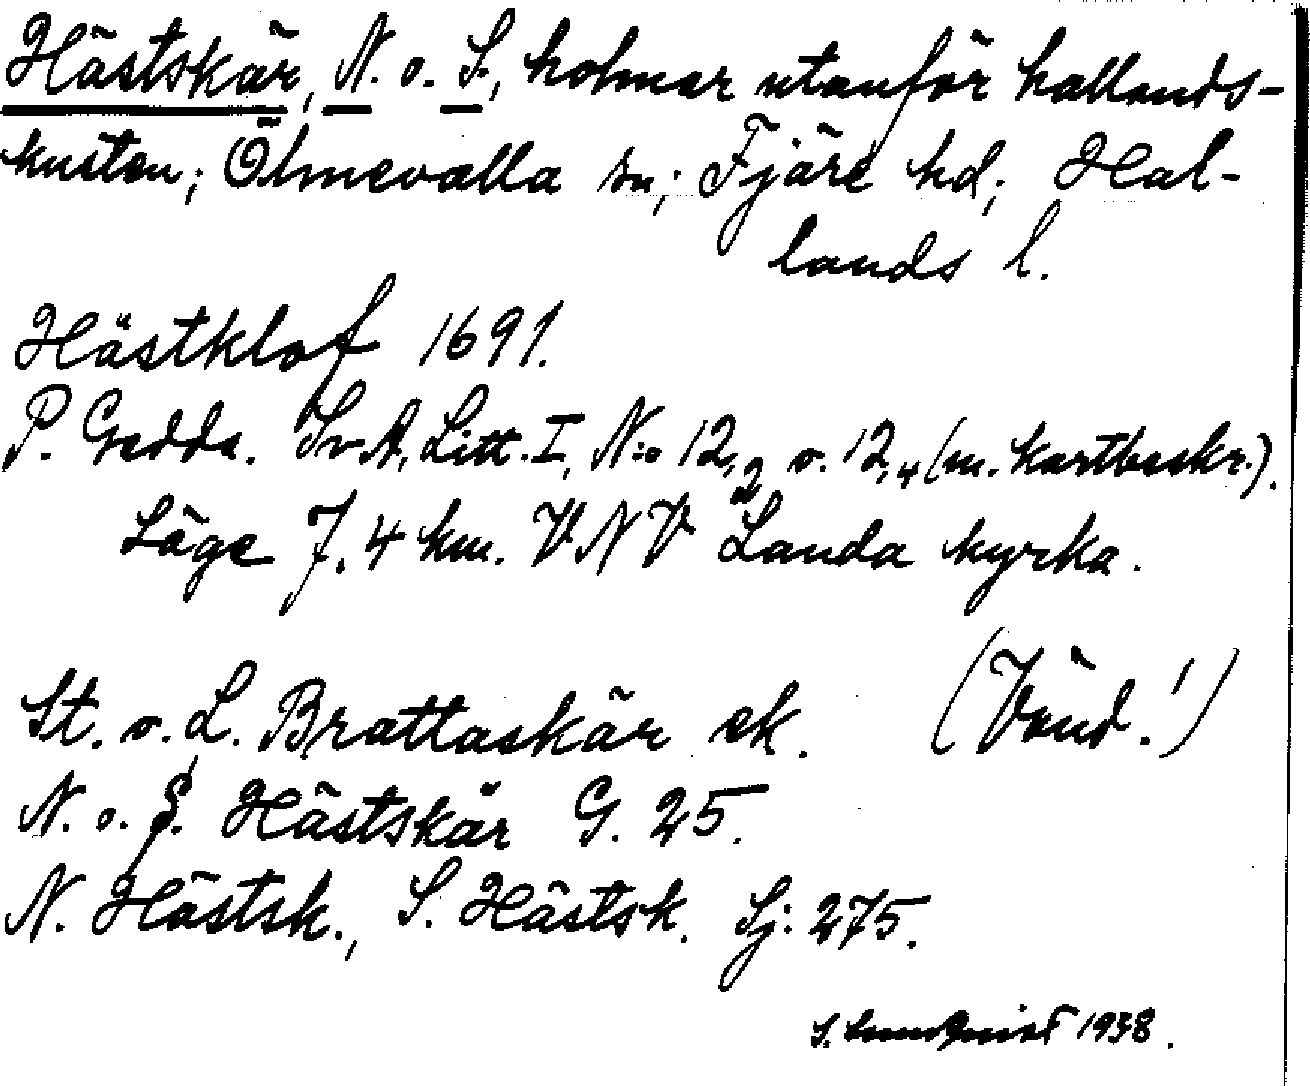 Hästskär, N. o. S., holmar utanför hallands-
kusten; Ölmevalla sn; Fjäre hd; Hal-
lands l.
Hästklof 1691.
P. Gedda. Sv. A. Litt. I, N:o 12,2 o. 12,4 (m. kartbeskr.).
Läge 7,4 km. VNV Landa kyrka.
St. o. L. Brattaskär ek. (Vänd!)
N. o. S. Hästskär G. 25.
N. Hästsk., S. Hästsk. Sj: 275.
S. 1938.